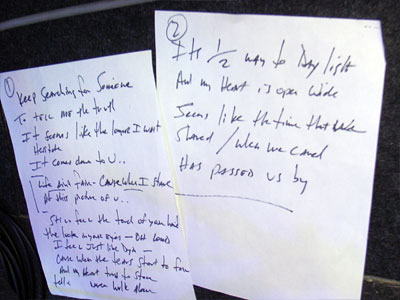 1
Keep Searching for Someone
To tell me the truth
It seems like the longer I wait
Hesitate
It comes down to U..
Life aint fair - Cause when I stare
At this picture of U..
Still feel the touch of your hand
the look in your eyes -
I feel just like Dyin -
Cause when the tears start to fall
And my Heart turns to stone
walk alone
2
Its 1/2 way to Day light
And my Heart is open wide
Seems like the time that we
Shared / when we cared
Has passed us by